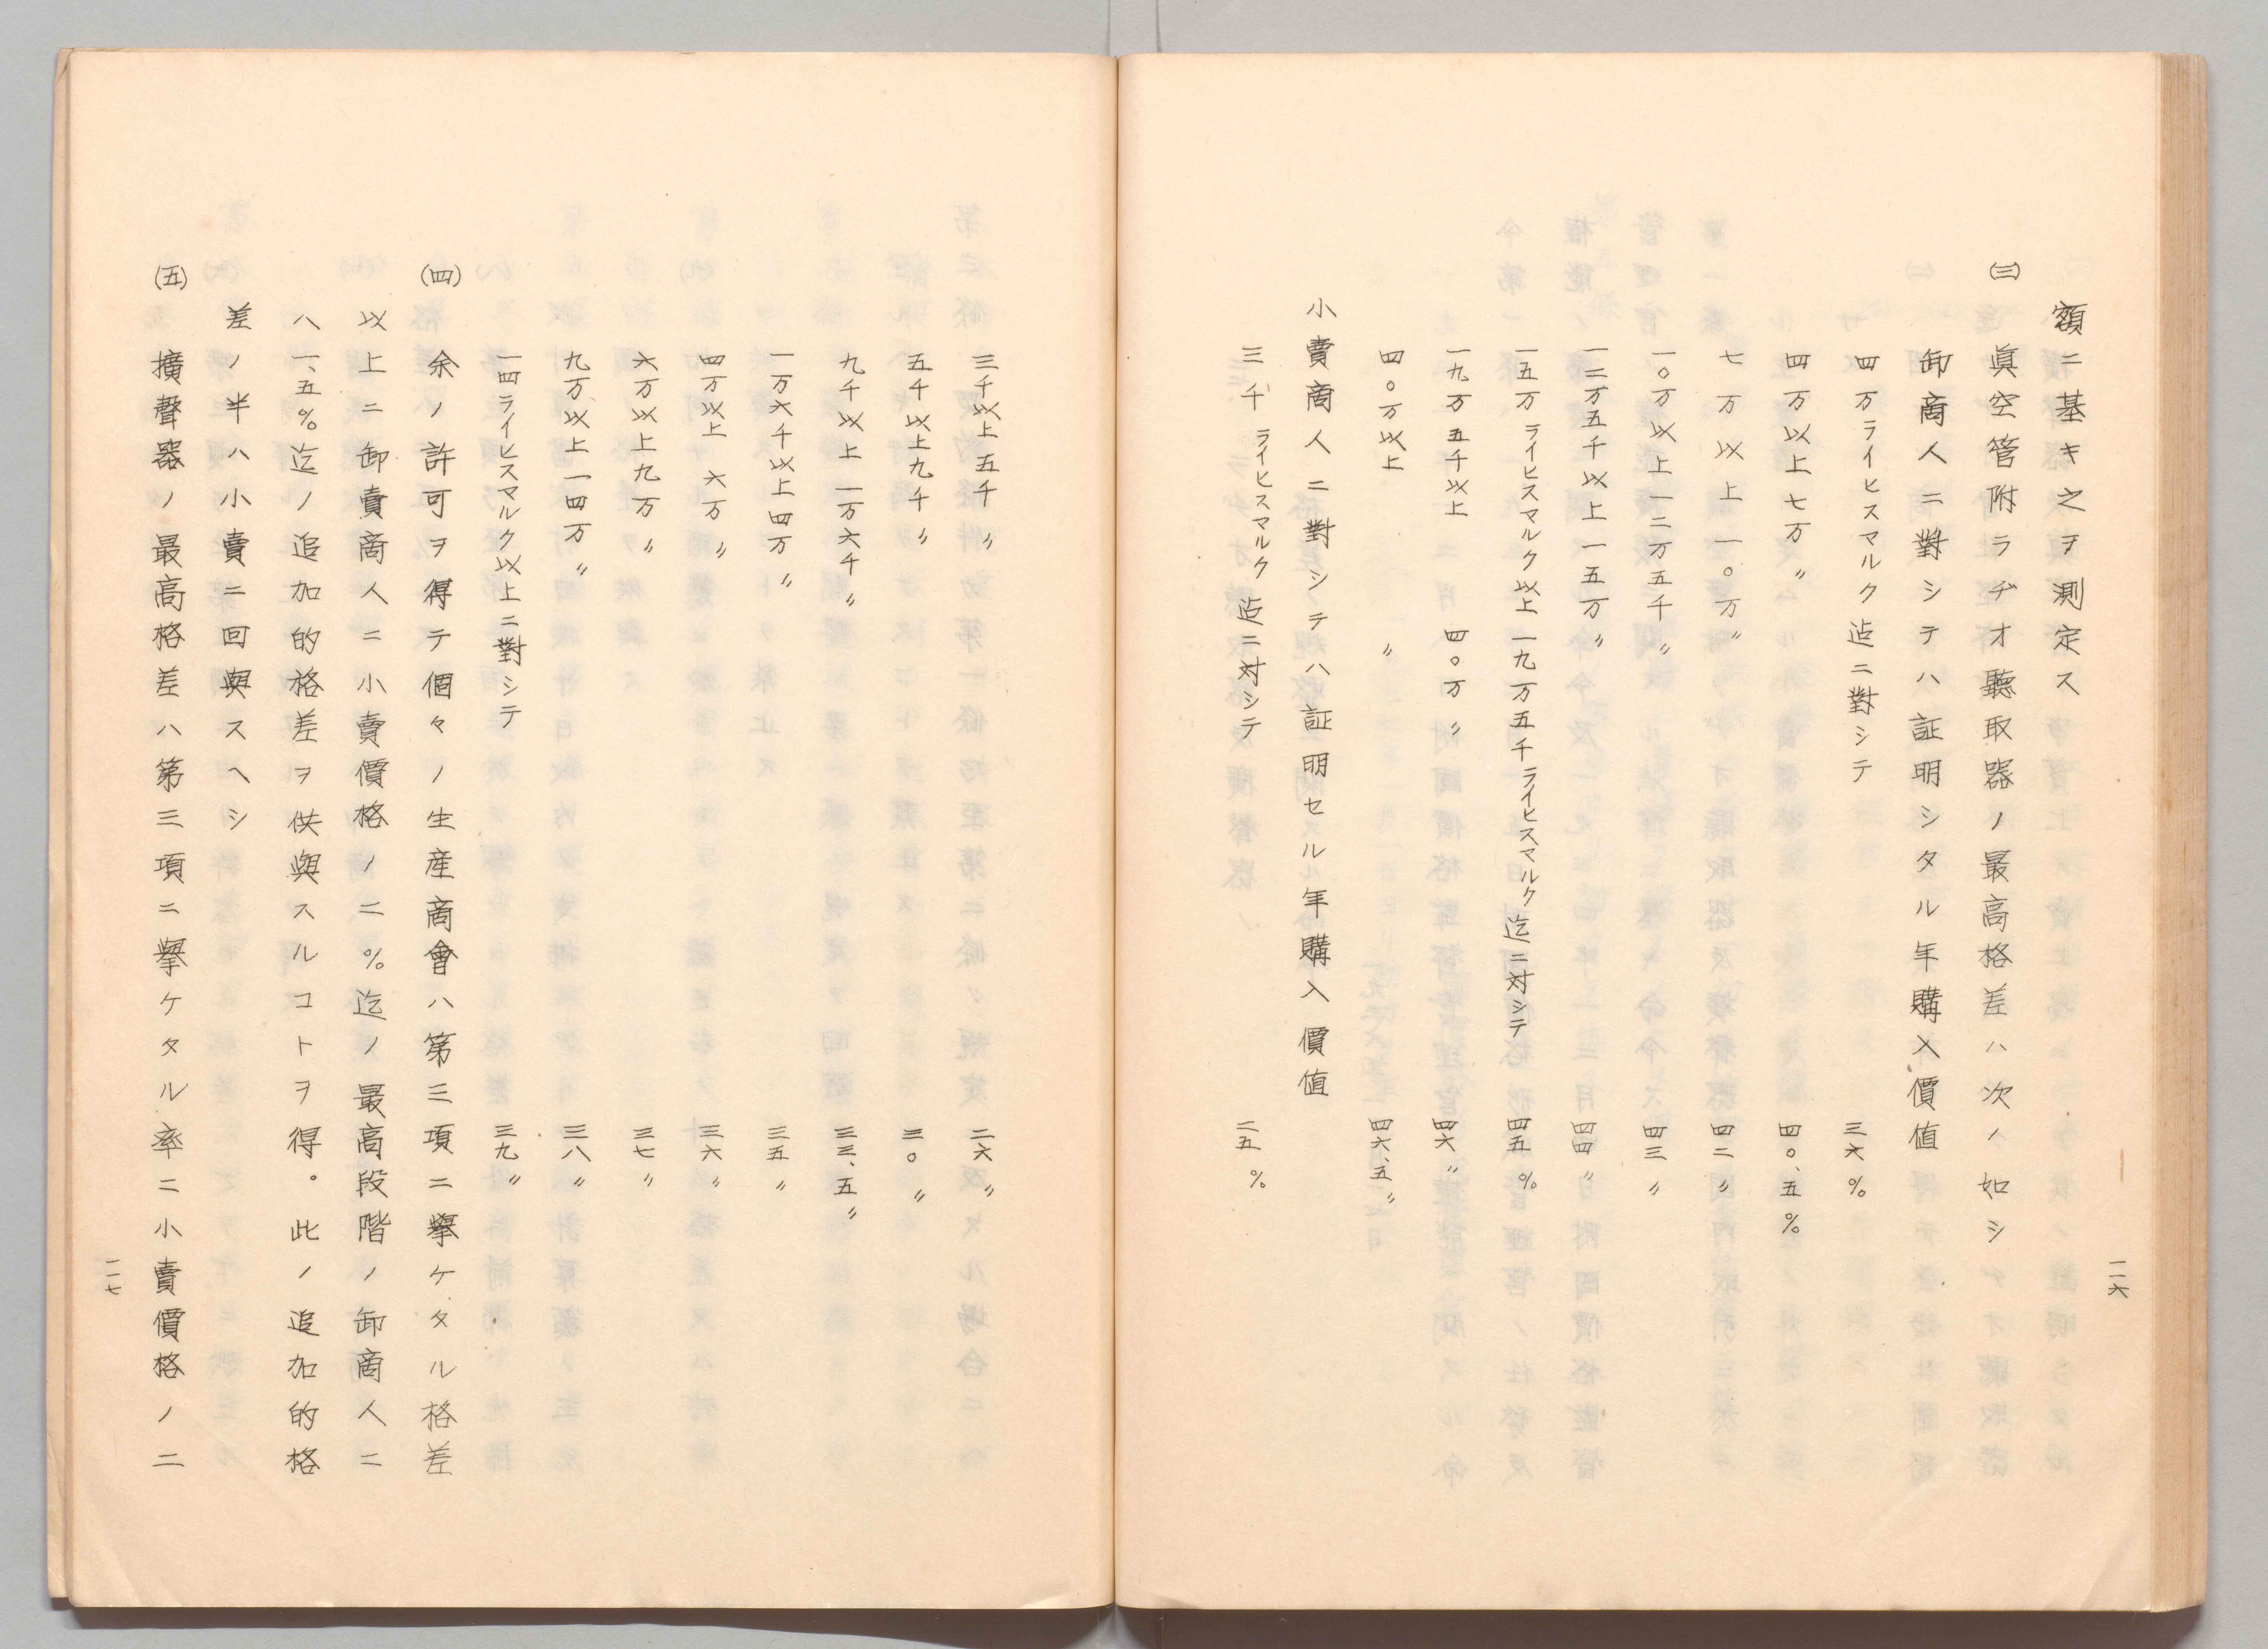 額ニ基キ之ヲ測定ス
㈢ 眞空管附ラヂオ聽取器ノ最高格差ハ次ノ如シ
卸商人ニ對シテハ証明シタル年購入價値
四万ライヒスマルク迄ニ對シテ 三六%
四万以上七万〃 四〇、五%
七万以上一〇万〃 四二〃
一〇万以上一二万五千〃 四三〃
一二万五千以上一五万〃 四四〃
一五万ライヒスマルク以上一九万五千ライヒスマルク迄ニ対シテ 四五%
一九万五千以上四〇万〃 四六〃
四〇万以上〃 四六、五〃
小賣商人ニ對シテハ証明セル年購入價値
三千ライヒスマルク迄ニ対シテ 二五%
一一六
三千以上五千〃 二六〃
五千以上九千〃 三〇〃
九千以上一万六千〃 三三、五〃
一万六千以上四万〃 三五〃
四万以上六万〃 三六〃
六万以上九万〃 三七〃
九万以上一四万〃 三八〃
一四ライヒスマルク以上ニ對シテ 三九〃
㈣ 余ノ許可ヲ得テ個々ノ生産商會ハ第三項ニ擧ケタル格差
以上ニ卸賣商人ニ小賣價格ノ二%迄ノ最高段階ノ卸商人ニ
ハ一、五%迄ノ追加的格差ヲ供與スルコトヲ得。此ノ追加的格
差ノ半ハ小賣ニ回與スヘシ
㈤ 擴聲器ノ最高格差ハ第三項ニ擧ケタル率ニ小賣價格ノ二
一一七